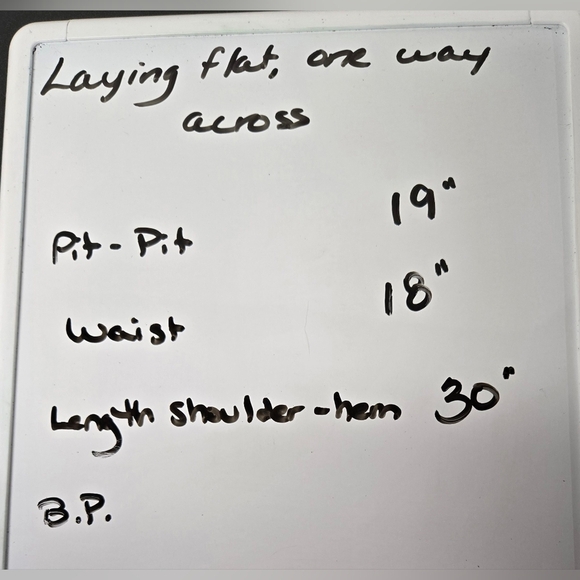 Laying flat, one way
across
Pit - Pit 19"
Waist 18"
Length shoulder - hem 30"
B.P.